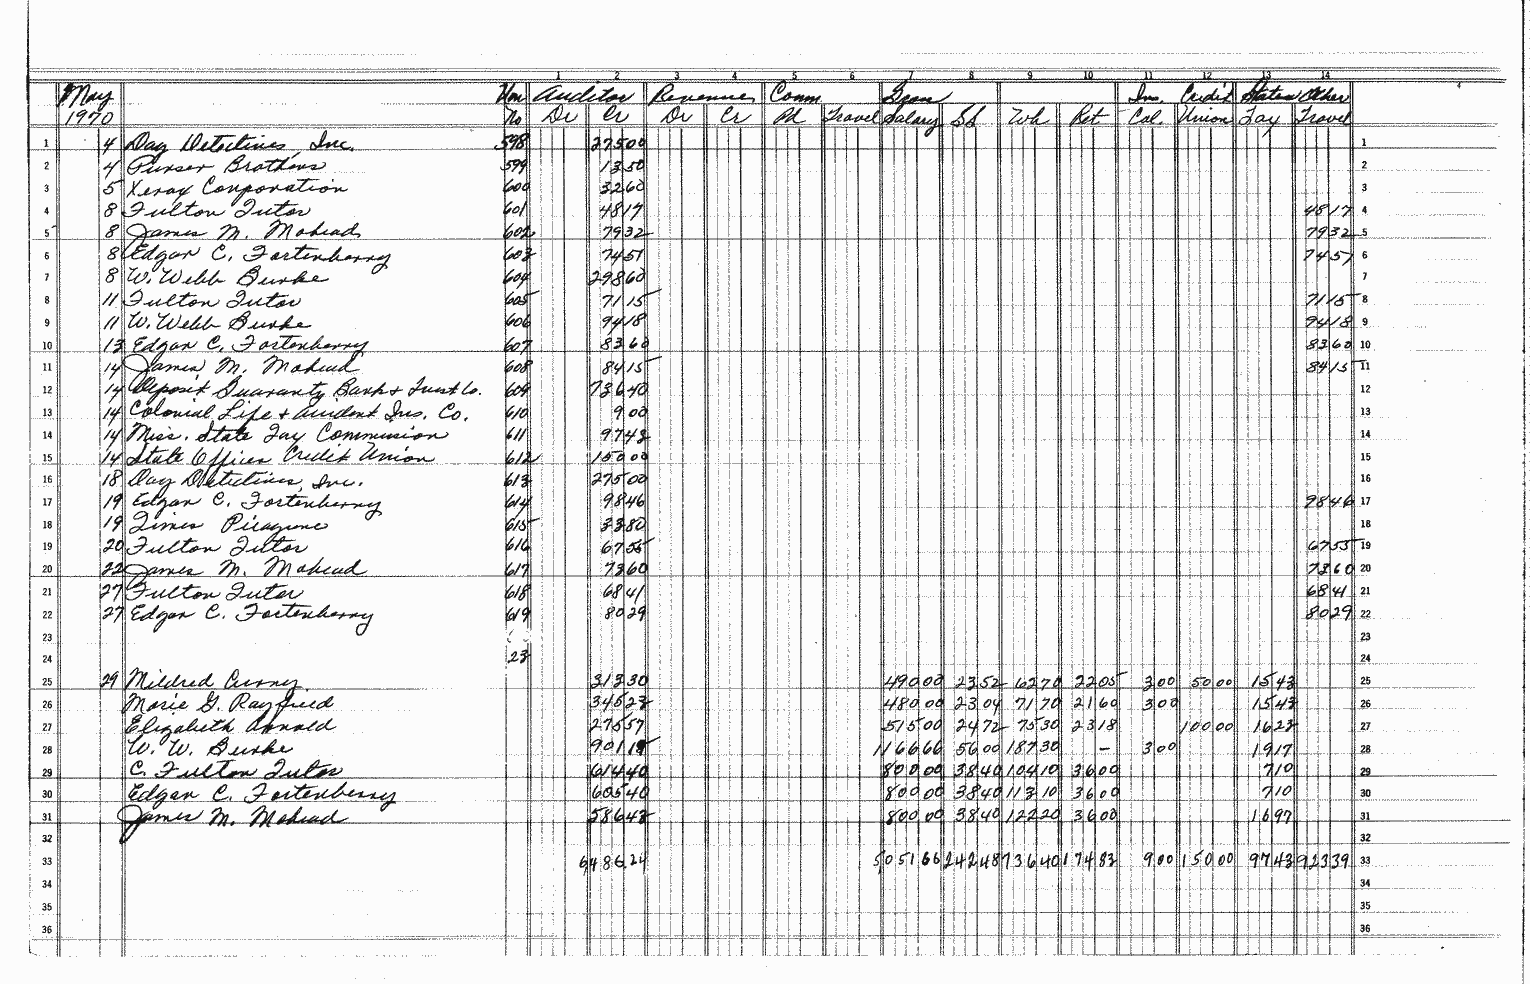 1 2 3 4 5 6 7 8 9 10 11 12 13 14
May Auditor Revenue Comm Gross Ins. Credit States Other
1970 No Dr Cr Dr Cr Pd Travel Salary SS Wh Ret Col. Union Tax Travel
1 4 Day Detectives, Inc. 598 27500 1
2 4 Purser Brothers 599 1350 2
3 5 Xerox Corporation 600 3260 3
4 8 Fulton Tutor 601 4817 4817 4
5 8 James M. Mohead 602 7932 7932 5
6 8 Edgar C. Fortenberry 603 7457 7457 6
7 8 W. Webb Burke 604 29860 7
8 11 Fulton Tutor 605 7115 7115 8
9 11 W. Webb Burke 606 9418 9418 9
10 13 Edgar C. Fortenberry 607 8360 8360 10
11 14 James M. Mohead 608 8415 8415 11
12 14 Deposit Guaranty Bank & Trust Co. 609 73640 12
13 14 Colonial Life & Accident Ins. Co. 610 900 13
14 14 Miss. State Tax Commission 611 9743 14
15 14 State Offices Credit Union 612 15000 15
16 18 Day Detectives, Inc. 613 27500 16
17 19 Edgar C. Fortenberry 614 9846 9846 17
18 19 Times Picayune 615 3380 18
19 20 Fulton Tutor 616 6755 6755 19
20 22 James M. Mohead 617 7360 7360 20
21 27 Fulton Tutor 618 6841 6841 21
22 27 Edgar C. Fortenberry 619 8029 8029 22
23 23
24 23 24
25 29 Mildred Curry 31330 49000 2352 6270 2205 300 5000 1543 25
26 Marie G. Rayfield 34523 48000 2304 7170 2160 300 1543 26
27 Elizabeth Arnold 27557 51500 2472 7530 2318 10000 1623 27
28 W. W. Burke 90119 116666 5600 18730 – 300 1917 28
29 C. Fulton Tutor 61440 80000 3840 10410 3600 710 29
30 Edgar C. Fortenberry 60540 80000 3840 11310 3600 710 30
31 James M. Mohead 58643 80000 3840 12220 3600 1697 31
32 32
33 648624 505166 24248 73640 17483 900 15000 9743 92339 33
34 34
35 35
36 36